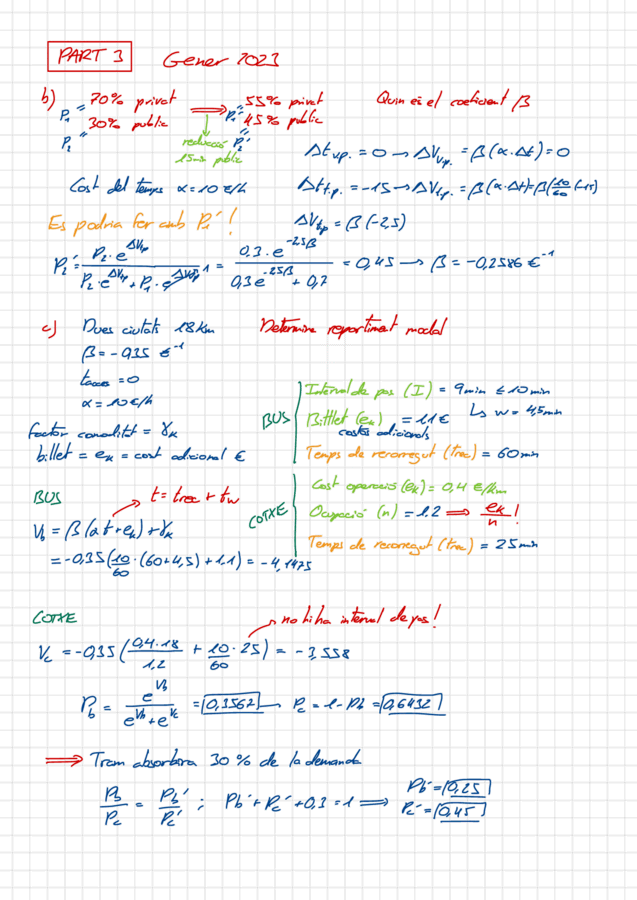 PART 3 Gener 2023
b) P₁ = 70% privat ⟹ P₁' = 55% privat Quin és el coeficient β
P₂ = 30% públic reducció 15min públic P₂' = 45% públic
Δt v.p. = 0 → ΔV v.p. = β(α·Δt) = 0
Cost del temps α = 10 €/h Δt t.p. = -15 → ΔV t.p. = β(α·Δt) = β(10/60 (-15))
Es podria fer amb P₁'! ΔV tp = β(-2,5)
P₂' = P₂·e^ΔVtp / (P₂·e^ΔVtp + P₁·e^ΔVvp 1) = 0,3·e^-2,5β / (0,3e^-2,5β + 0,7) = 0,45 → β = -0,2586 €⁻¹
c) Dues ciutats 18 Km Determine repartiment modal
β = -0,35 €⁻¹
t acces = 0
α = 10 €/h
factor comoditat = γk
billet = ek = cost adicional €
BUS
Interval de pas (I) = 9min ≤ 10min
↳ w = 4,5min
Bitllet (ek) = 1,1€
costos adicionals
Temps de recorregut (trec) = 60min
COTXE
Cost operació (ek) = 0,4 €/km
Ocupació (n) = 1.2 ⟹ ek/n !
Temps de recorregut (trec) = 25min
BUS t = trec + tw
Vb = β(αt + ek) + γk
= -0,35(10/60 · (60+4,5) + 1.1) = -4,1475
COTXE no hi ha interval de pas!
Vc = -0,35(0,4·18/1,2 + 10/60 · 25) = -3,558
Pb = e^Vb / (e^Vb + e^Vc) = 0,3562 → Pc = 1 - Pb = 0,6432
⟹ Tram absorbira 30% de la demanda
Pb/Pc = Pb'/Pc' ; Pb' + Pc' + 0,3 = 1 ⟹ Pb' = 0,25
Pc' = 0,45